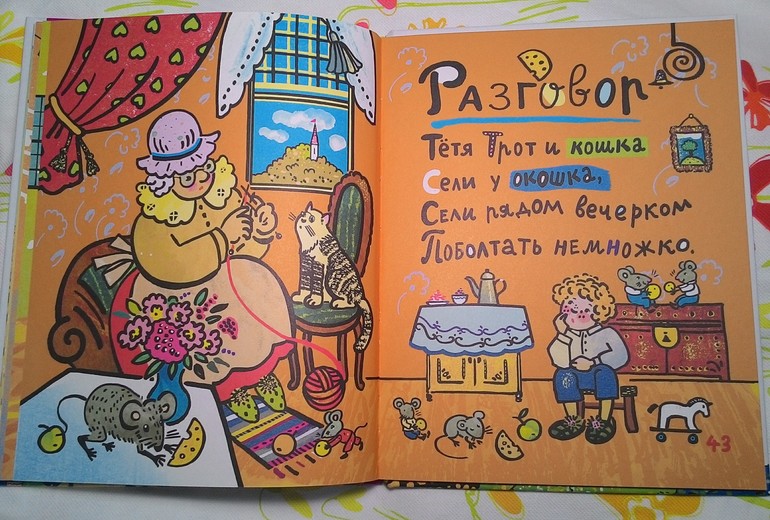 Разговор
Тётя Трот и кошка
Сели у окошка,
Сели рядом вечерком
Поболтать немножко.
43